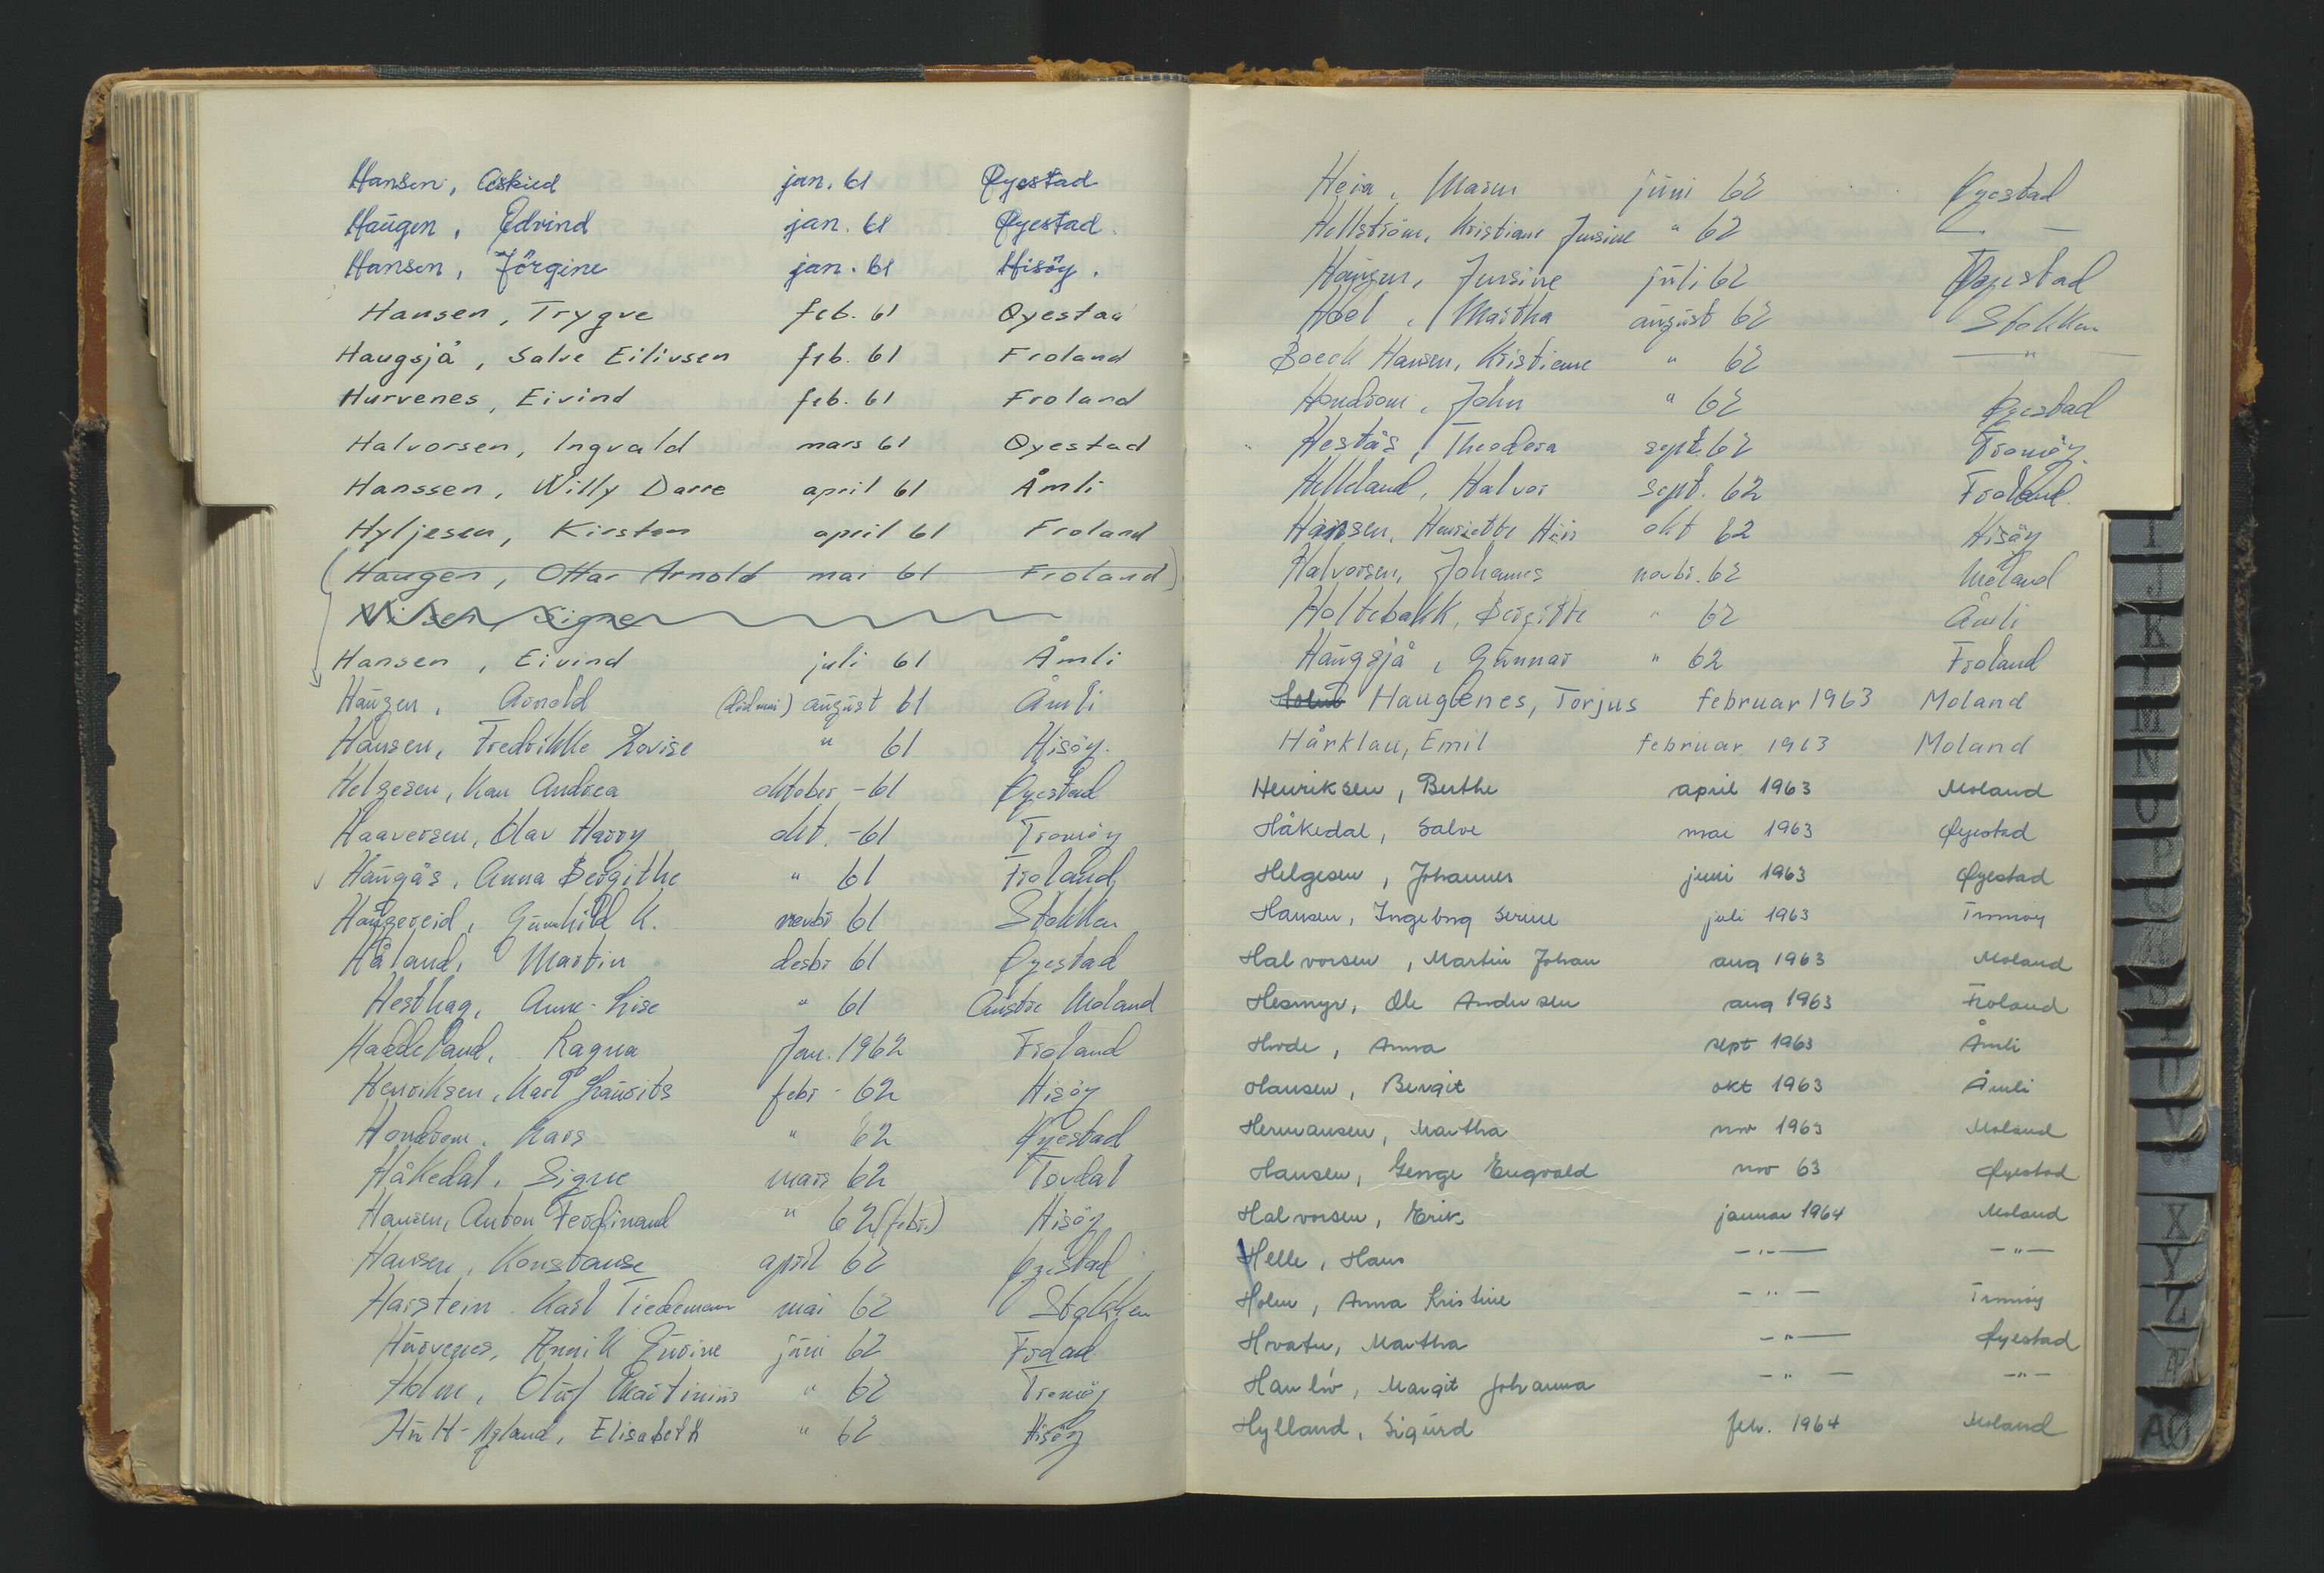 Hansen, Askied jan. 61 Øyestad
Haugen, Edvind jan. 61 Øyestad.
Hansen, Jörgine jan. 61 Hisöy.
Hansen, Trygve feb. 61 Øyestad
Haugsjå, Salve Eilivsen feb. 61 Froland
Hurvenes, Eivind feb. 61 Froland
Halvorsen, Ingvald mars 61 Øyestad
Hanssen, Willy Darre april 61 Åmli
Hyljesen, Kirsten april 61 Froland
(Haugen, Ottar Arnold mai 61 Froland)
Nilsen, Signe
Hansen, Eivind juli 61 Åmli
Haugen, Arnold august 61 Åmli
Hansen, Fredrikke Lovise " 61 Hisöy.
Helgesen, Kan Andrea oktober -61 Øyestad
Haaversen, Olav Harry okt. -61 Tromöy
Haugås, Anna Bergithe " 61 Froland
Haugereid, Gunhild K. novbr 61 Stokken
Håland, Martin desbr 61 Øyestad
Hesthag, Anne-Lise " 61 Austre Moland
Haddeland, Ragna Jan. 1962 Froland
Henriksen, Karl Laurits febr - 62 Hisöy
Hondrom, Lars " 62 Øyestad
Håkedal, Signe mars 62 Tovdal
Hansen, Anton Ferdinand " 62 (febr.) Hisöy
Hansen, Konstanse april 62 Øyestad
Harstein Karl Tiedeman mai 62 Stokken
Hurvenes, Annik Gurine juni 62 Frolad
Holm, Oluf Martinius " 62 Tromöy
Hult-Nyland, Elisabeth " 62 Hisöy
Heia, Maren juni 62 Øyestad
Hellström, Kristiane Jensine " 62 — —
Haugen, Jensine juli 62 Øyestad
Hoel, Martha august 62 Stokken
Boeck Hansen, Kristiane " 62 — " —
Hondrom, John " 62 Øyestad
Hestås, Theodora sept. 62 Tromöy.
Helleland, Halvor sept. 62 Froland.
Hansen, Henriette okt 62 Hisöy
Halvorsen, Johannes novbr. 62 Moland
Holtebakk, Bergitte " 62 Åmli
Haugsjå, Gunnar " 62 Froland
Hauglenes, Torjus februar 1963 Moland
Hårklau, Emil februar 1963 Moland
Henriksen, Berthe april 1963 Moland
Håkedal, Salve mai 1963 Øyestad
Helgesen, Johannes juni 1963 Øyestad
Hansen, Ingeborg Serine juli 1963 Tromöy
Halvorsen, Martin Johan aug 1963 Moland
Hesmyr, Ole Andersen aug 1963 Froland
Hovde, Anna sept 1963 Åmli
Hansen, Bergit okt 1963 Åmli
Hermansen, Martha nov 1963 Moland
Hansen, George Engvald nov 63 Øyestad
Halvorsen, Erik januar 1964 Moland
Helle, Hans — " — — " —
Holm, Anna Kristine — " — Tromöy
Hvatu, Martha — " — Øyestad
Hanliv, Margit Johanna — " — — " —
Hylland, Sigurd feb. 1964 Moland
I
J
K
L
M
N
O
P
Q
R
S
T
U
V
X
Y
Z
Æ
AØ